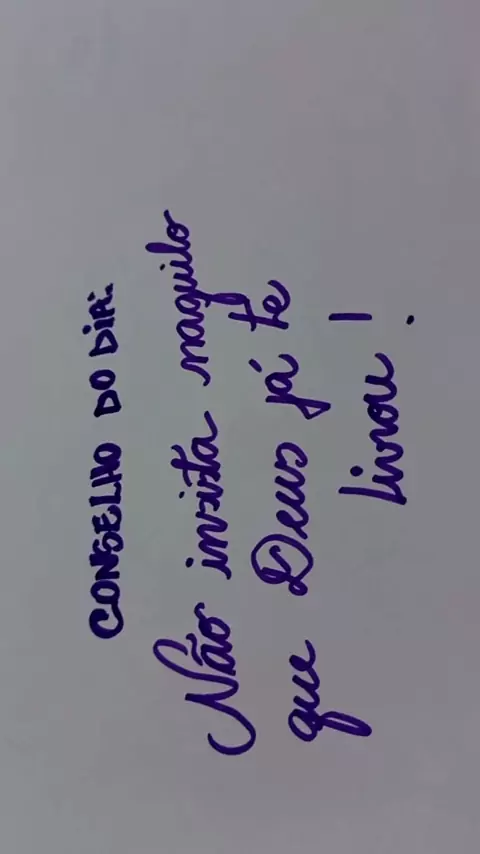 CONSELHO DO DIA:
Não insista naquilo
que Deus já te
Livrou!